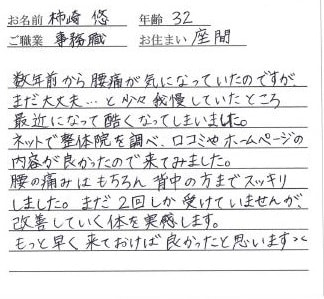 お名前 柿崎 悠 年齢 32
ご職業 事務職 お住まい 座間
数年前から腰痛が気になっていたのですが、
まだ大丈夫…と少々我慢していたところ
最近になって酷くなってしまいました。
ネットで整体院を調べ、口コミやホームページの
内容が良かったので来てみました。
腰の痛みはもちろん背中の方までスッキリ
しました。まだ2回しか受けていませんが、
改善していく体を実感します。
もっと早く来ておけば良かったと思います><